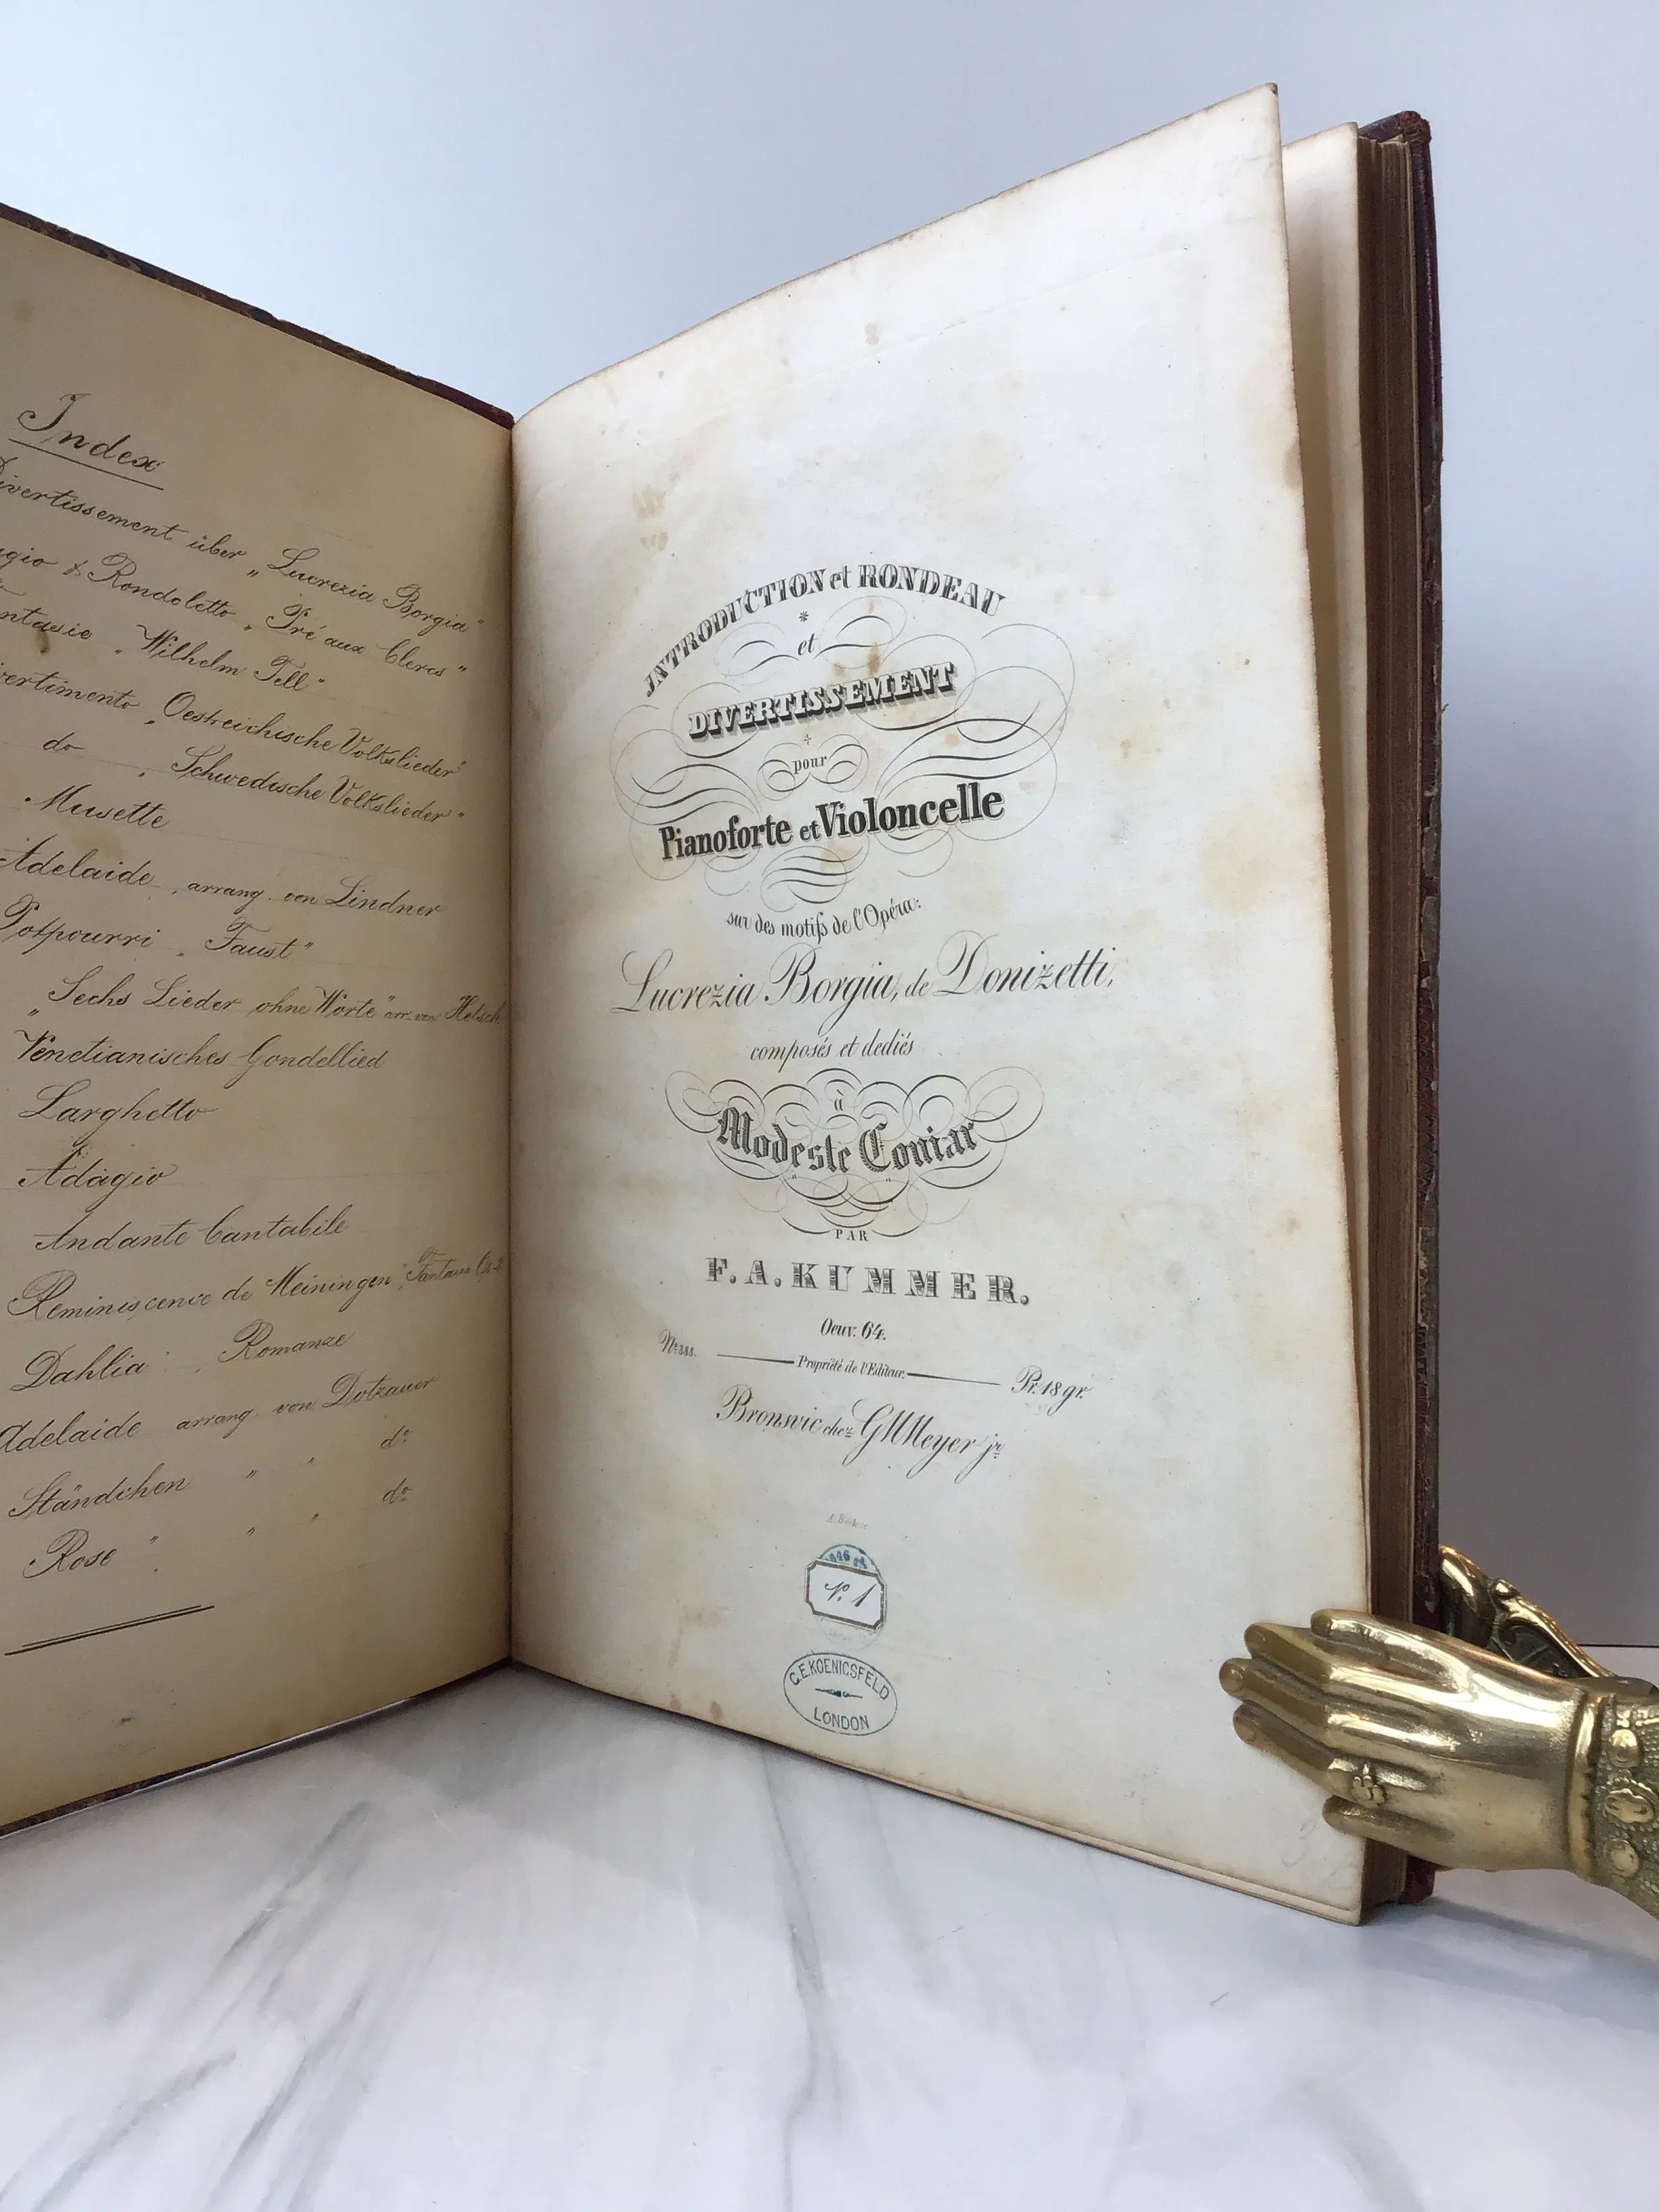 Index
Divertissement über „Lucrezia Borgia"
& Rondoletto „Pré aux Clercs"
„Wilhelm Tell"
„Oestreichische Volkslieder"
do „Schwedische Volkslieder"
Musette
Adelaide, arrang. von Lindner
Potpourri „Faust"
„Sechs Lieder ohne Worte" arr. von
Venetianisches Gondellied
Larghetto
Adagio
Andante Cantabile
Reminiscence de Meiningen, Fantasie Op. 2
Dahlia, Romanze
Adelaide arrang. von Dotzauer
Ständchen " " do
Rose " " " do
INTRODUCTION et RONDEAU
et
DIVERTISSEMENT
pour
Pianoforte et Violoncelle
sur des motifs de l'Opéra:
Lucrezia Borgia, de Donizetti,
composés et dediés
à
Modeste Couiar
PAR
F. A. KUMMER.
Oeuv. 64.
Nº 388. Propriété de l'Editeur. Pr. 18 gr.
Bronsvic chez G M Meyer jr.
N. 1
C. E. KOENICSFELD
LONDON
3